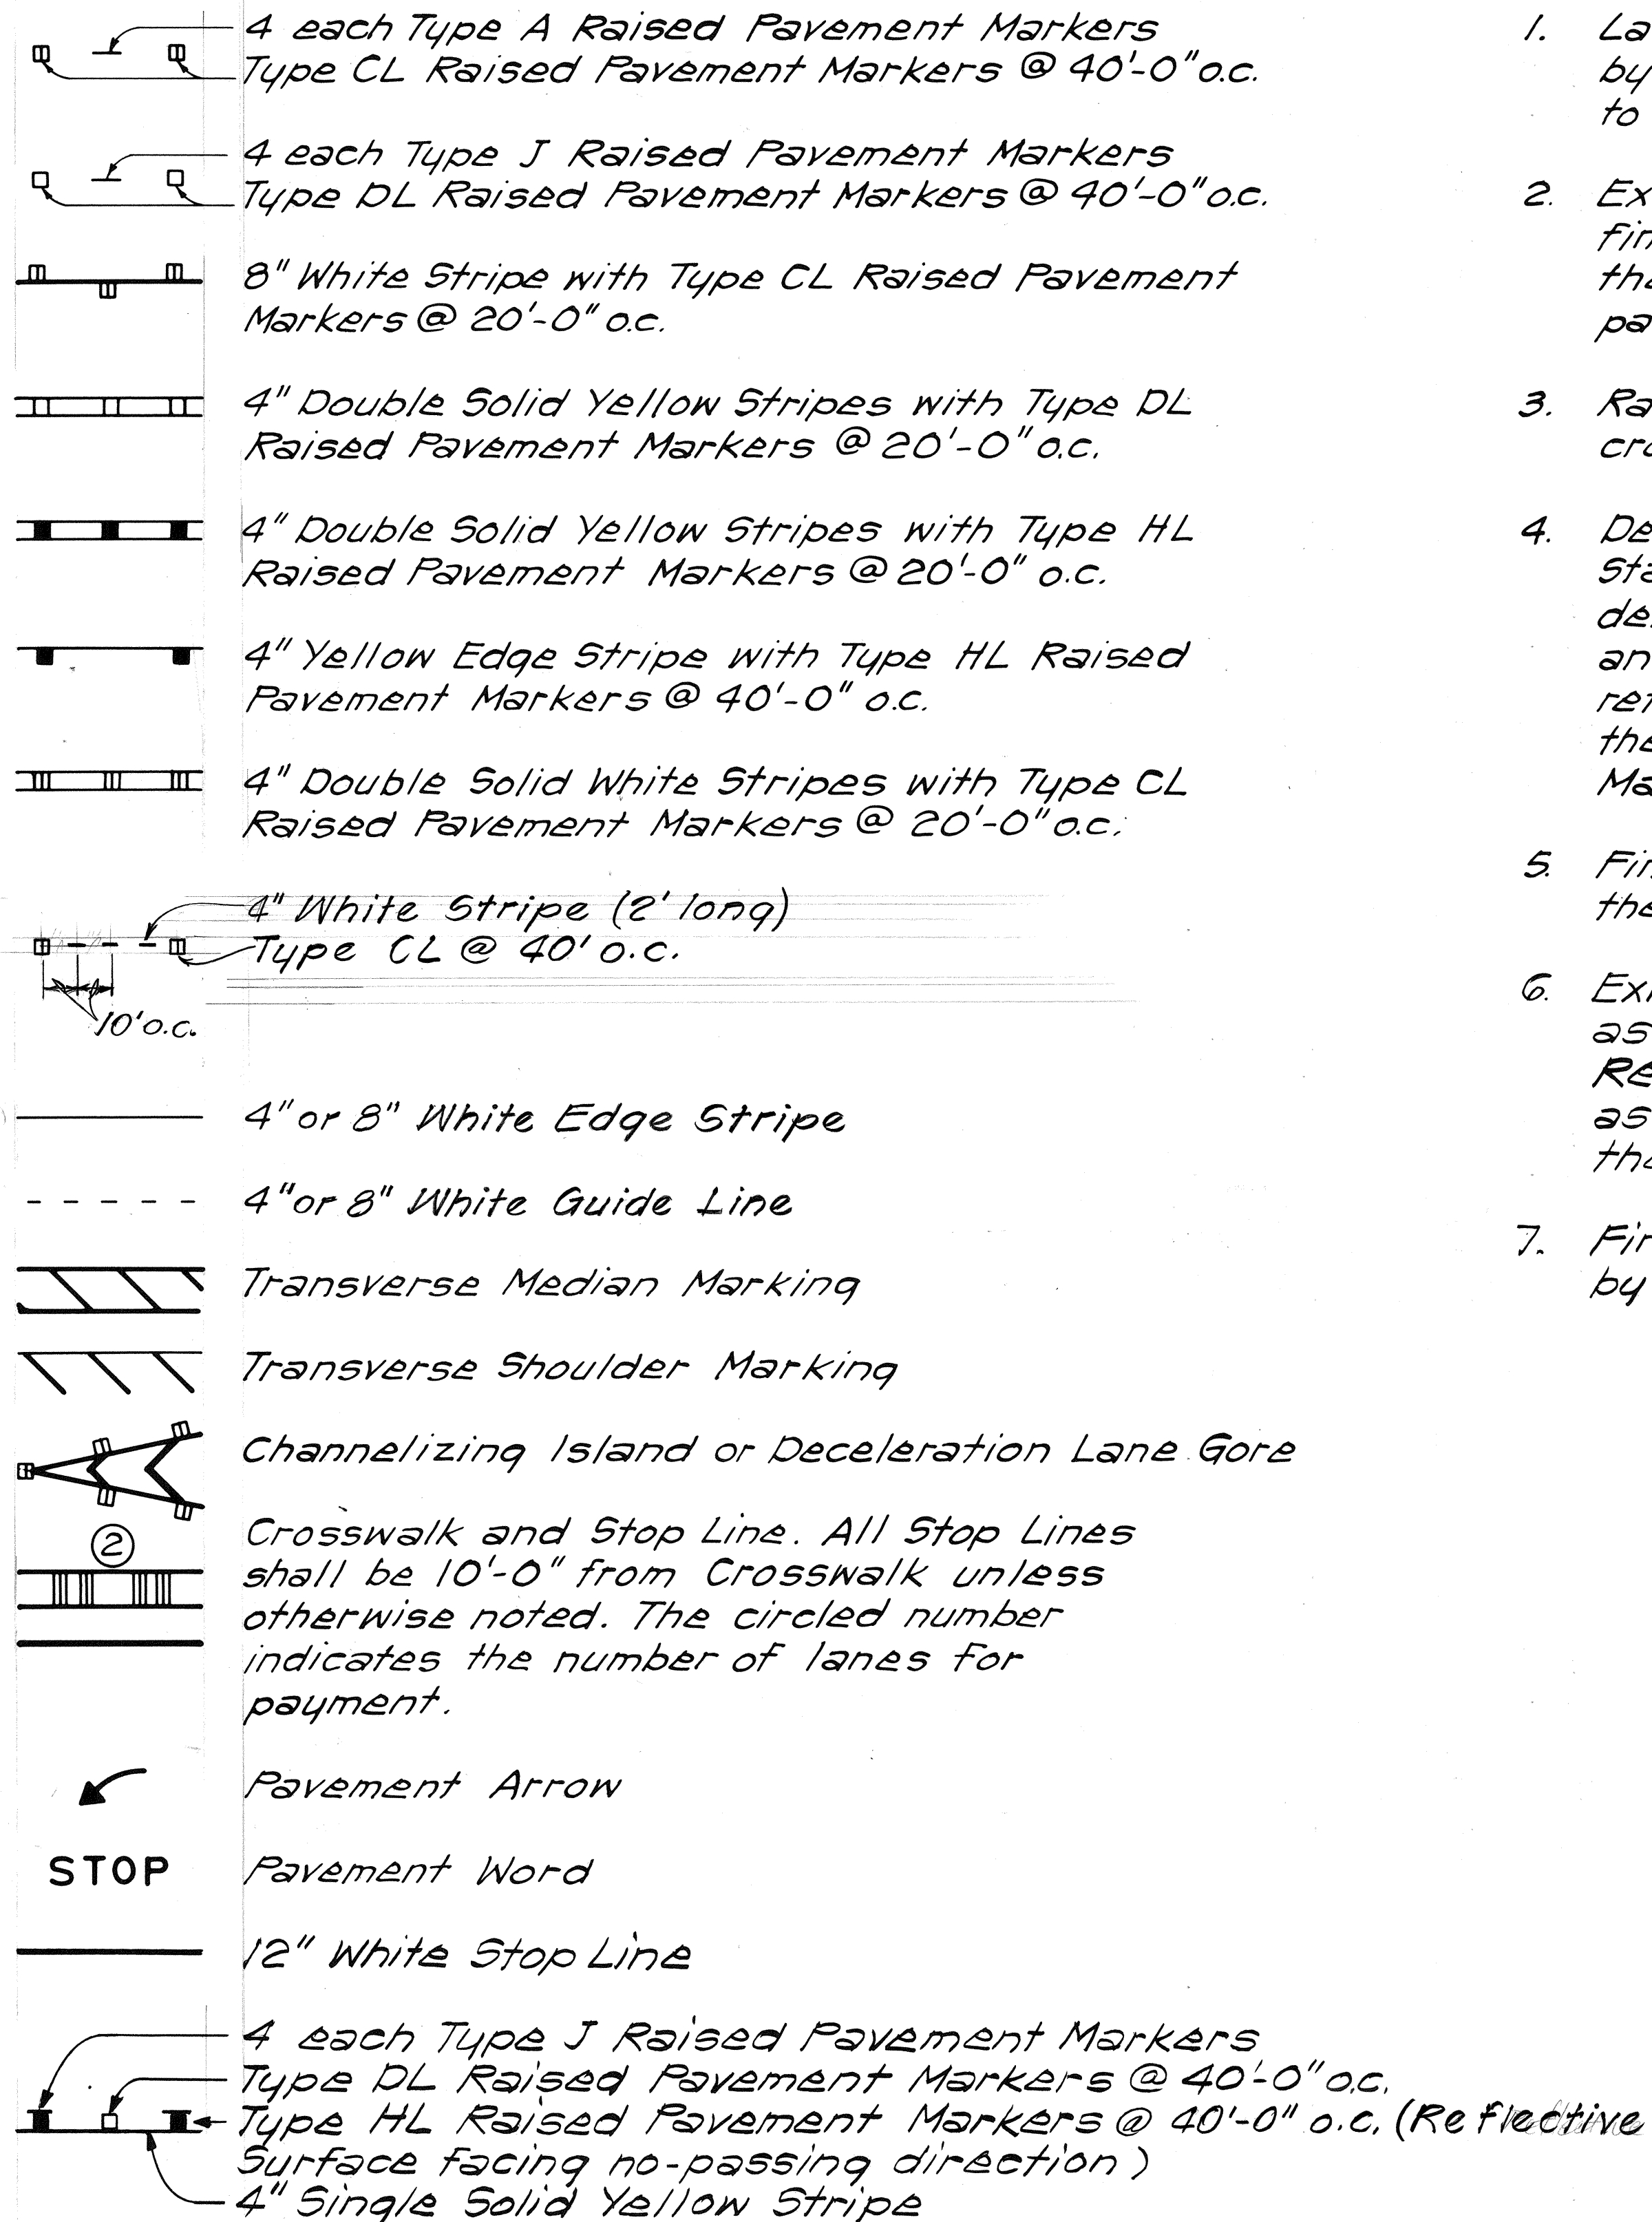 4 each Type A Raised Pavement Markers
Type CL Raised Pavement Markers @ 40'-0" o.c.
4 each Type J Raised Pavement Markers
Type DL Raised Pavement Markers @ 40'-0" o.c.
8" White Stripe with Type CL Raised Pavement
Markers @ 20'-0" o.c.
4" Double Solid Yellow Stripes with Type DL
Raised Pavement Markers @ 20'-0" o.c.
4" Double Solid Yellow Stripes with Type HL
Raised Pavement Markers @ 20'-0" o.c.
4" Yellow Edge Stripe with Type HL Raised
Pavement Markers @ 40'-0" o.c.
4" Double Solid White Stripes with Type CL
Raised Pavement Markers @ 20'-0" o.c.
4" White Stripe (2' long)
Type CL @ 40' o.c.
10' o.c.
4" or 8" White Edge Stripe
4" or 8" White Guide Line
Transverse Median Marking
Transverse Shoulder Marking
Channelizing Island or Deceleration Lane Gore
2
Crosswalk and Stop Line. All Stop Lines
shall be 10'-0" from Crosswalk unless
otherwise noted. The circled number
indicates the number of lanes for
payment.
Pavement Arrow
STOP
Pavement Word
12" White Stop Line
4 each Type J Raised Pavement Markers
Type DL Raised Pavement Markers @ 40'-0" o.c.
Type HL Raised Pavement Markers @ 40'-0" o.c. (Reflective
Surface facing no-passing direction)
4" Single Solid Yellow Stripe
1. La
by
to
2. Ex
fin
tha
pa
3. Ra
cro
4. De
Sta
de
an
ref
the
Ma
5. Fin
the
6. Exi
as
Re
as
tha
7. Fin
by